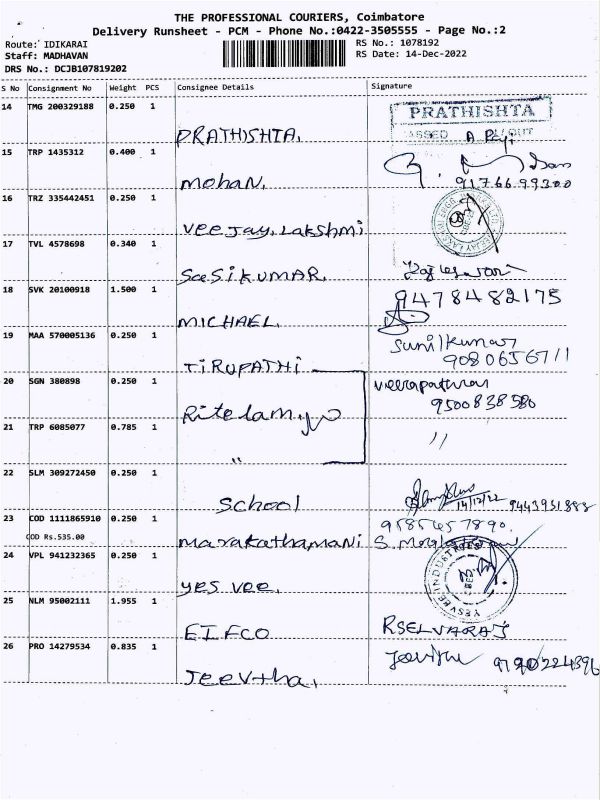 THE PROFESSIONAL COURIERS, Coimbatore
Delivery Runsheet - PCM - Phone No.:0422-3505555 - Page No.:2
Route: IDIKARAI
RS No.: 1078192
Staff: MADHAVAN
RS Date: 14-Dec-2022
DRS No.: DCJB107819202
S No Consignment No Weight PCS Consignee Details Signature
14 TMG 200329188 0.250 1
PRATHISHTA
PRATHISHTA.
15 TRP 1435312 0.400 1
mohan.
16 TRZ 335442451 0.250 1
veejay, Lakshmi
17 TVL 4578698 0.340 1
SaSiKUMAR.
18 SVK 20100918 1.500 1
9478482175
MICHAEL.
19 MAA 570005136 0.250 1
Sunilkumar
TIRUPATHI
20 SGN 380898 0.250 1
9500838580
21 TRP 6085077 0.785 1
"
"
22 SLM 309272450 0.250 1
School
14/12/22
23 COD 1111865910 0.250 1
COD Rs.535.00
Marakathamani
24 VPL 941232365 0.250 1
YESVEE INDUSTRIES
yes vee.
25 NLM 95002111 1.955 1
EIFCO
RSELVARAJ
26 PRO 14279534 0.835 1
Jeevtha.